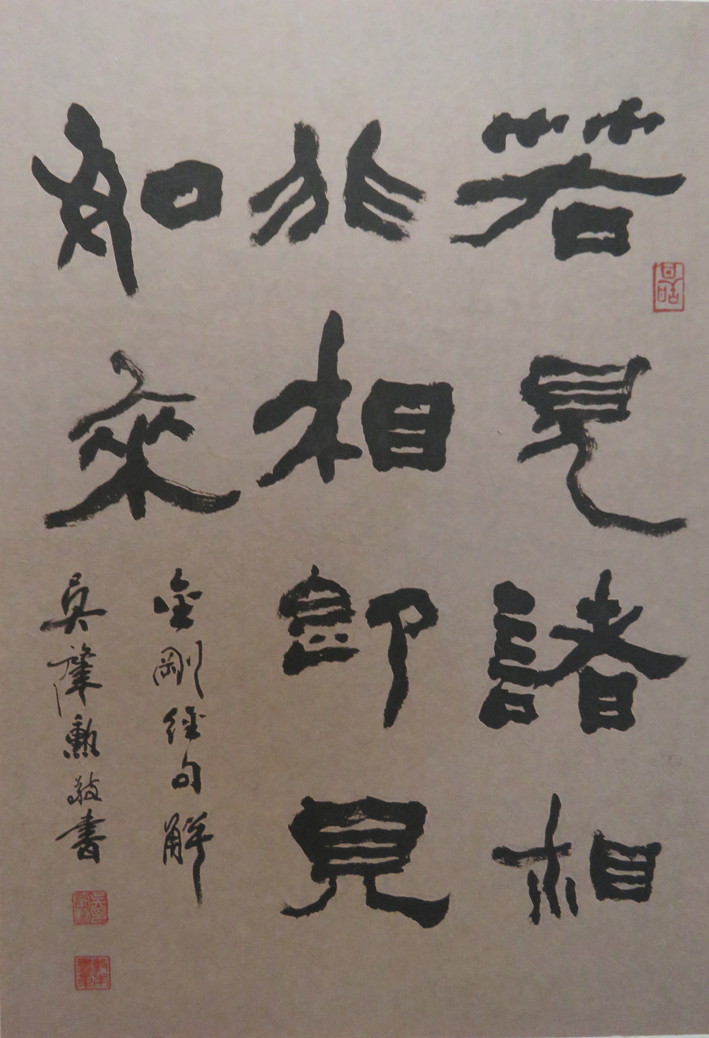 若見諸相
非相即見
如來
金剛經句解
吳肇勳敬書